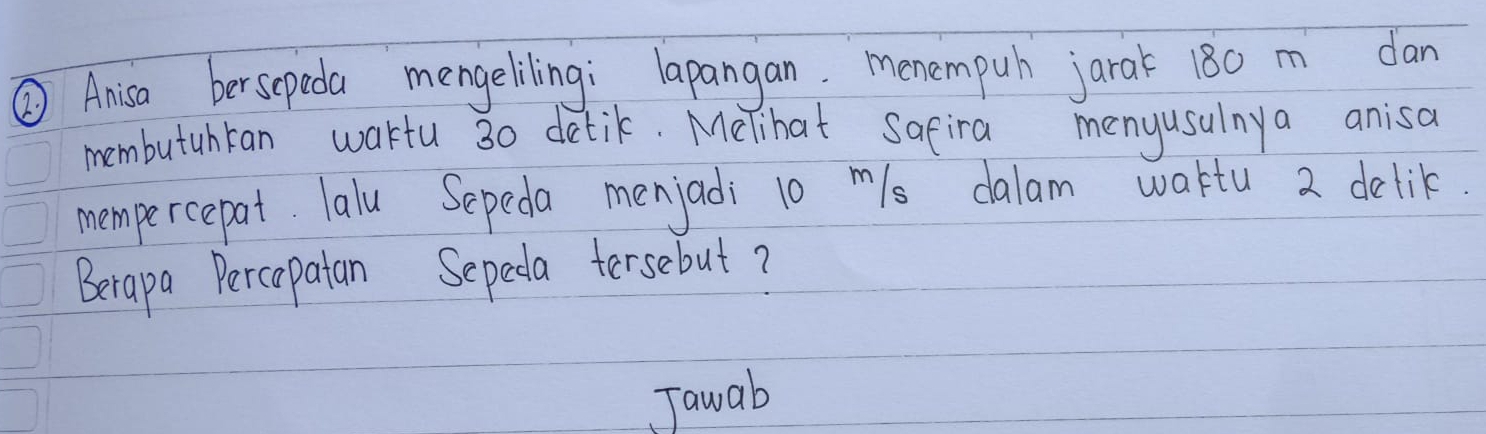 2. Anisa bersepeda mengelilingi lapangan. menempuh jarak 180 m dan
membutuhkan waktu 30 detik. Melihat Safira menyusulnya anisa
mempercepat. lalu Sepeda menjadi 10 m/s dalam waktu 2 detik.
Berapa Percepatan Sepeda tersebut?
Jawab